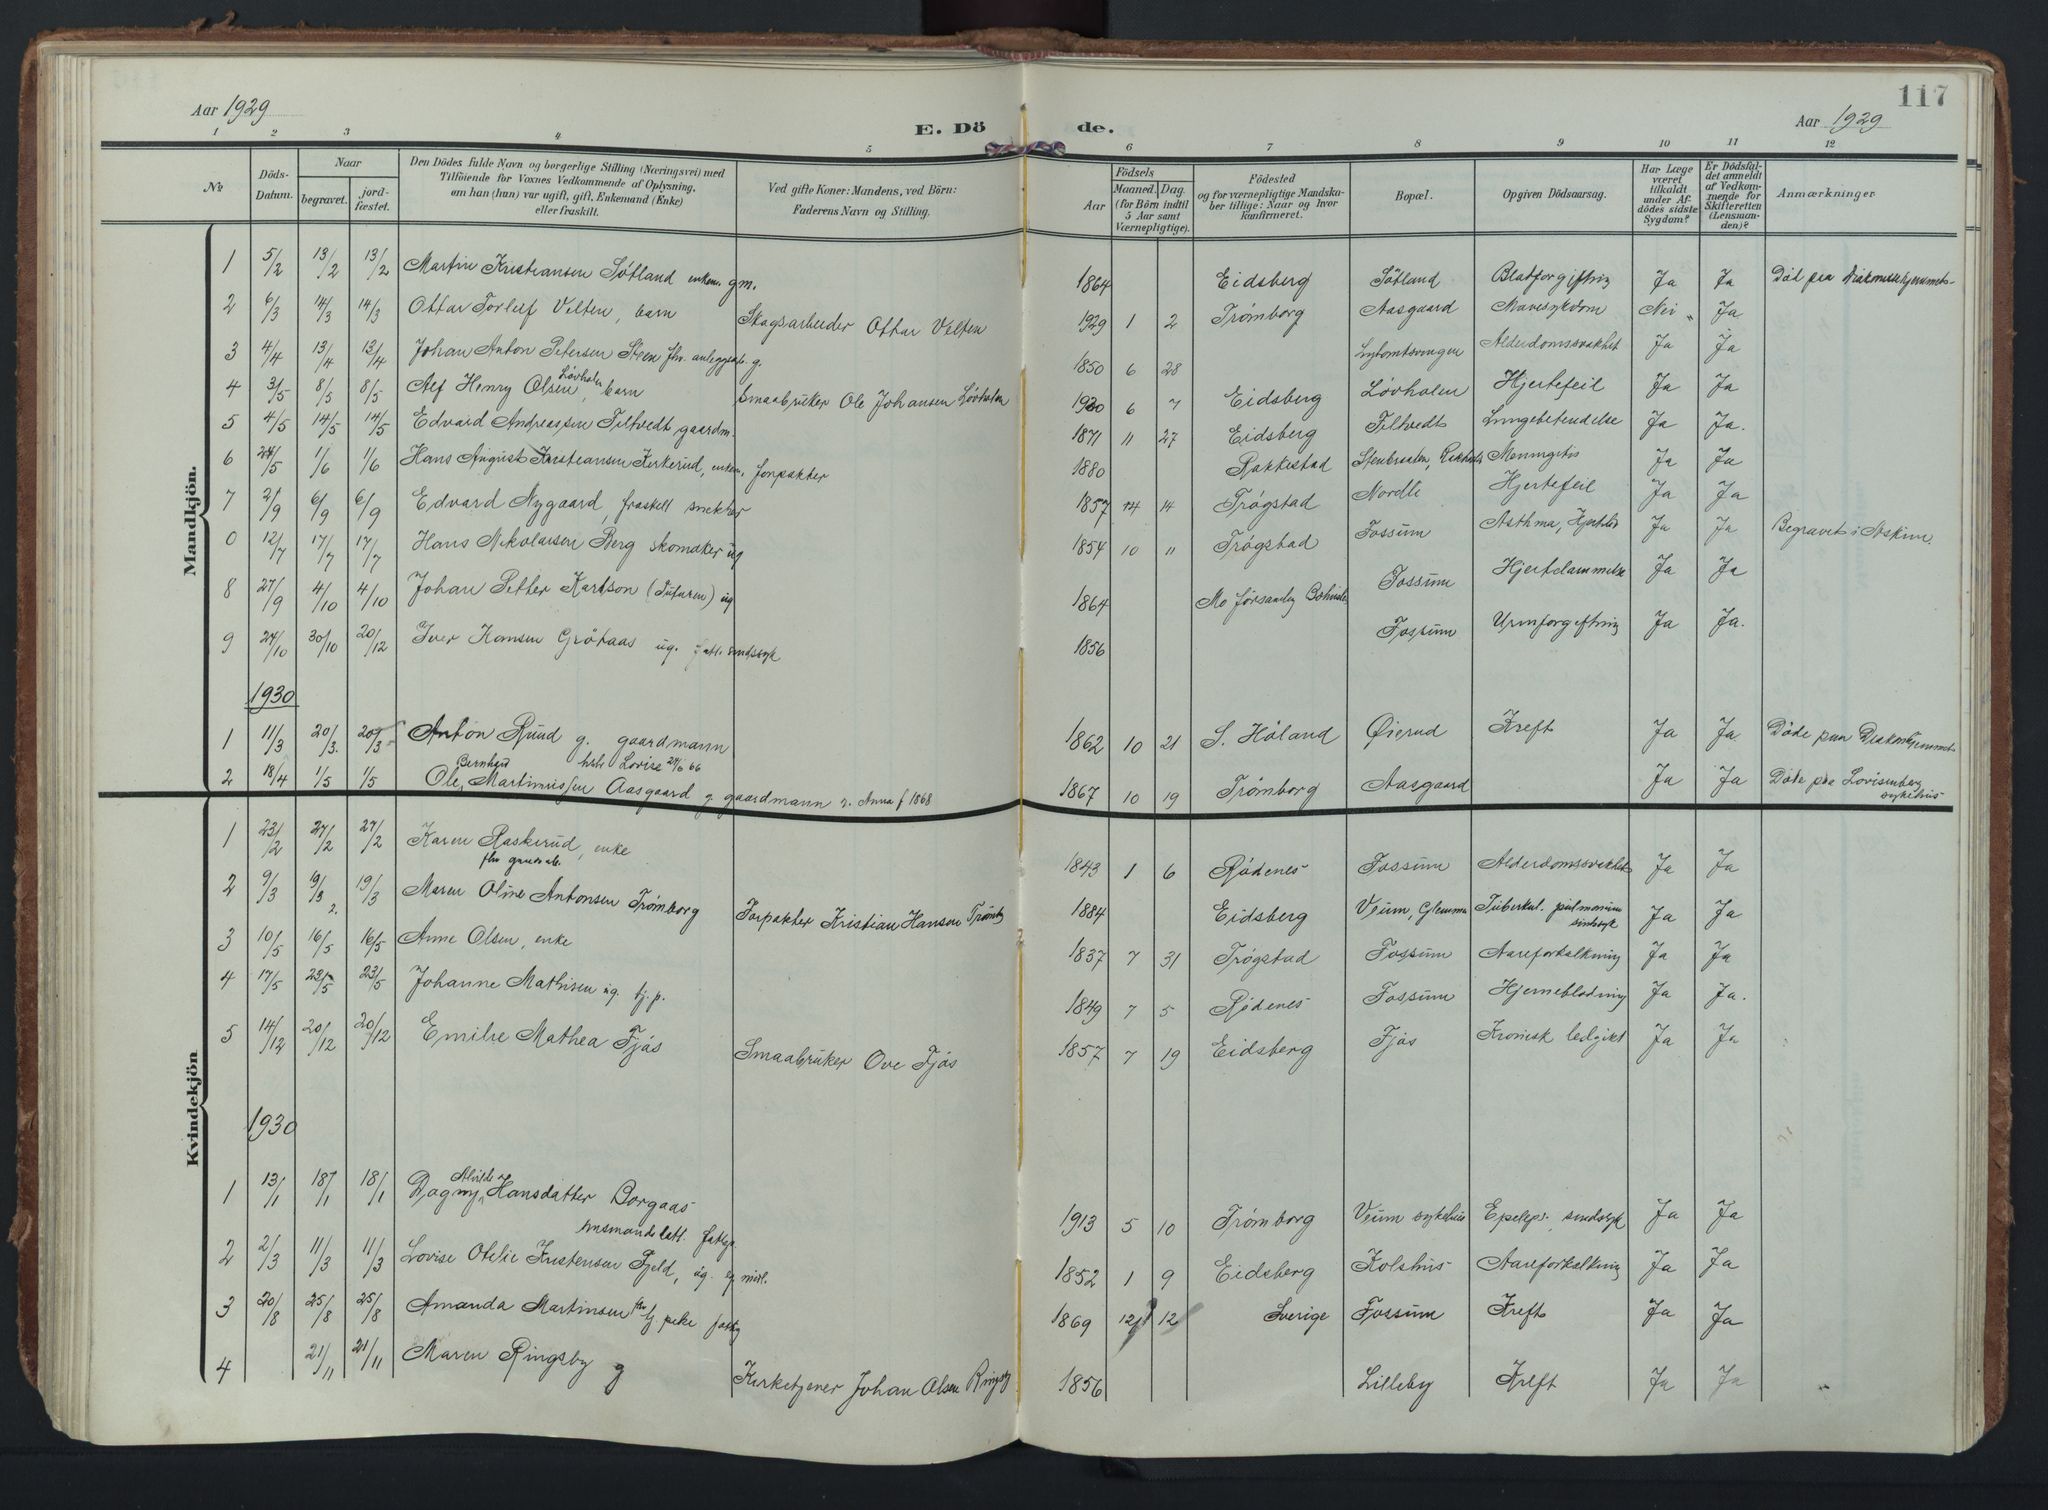 117
Aar 1929
E. Dö de.
Aar 1929
1 2 3 4 5 6 7 8 9 10 11 12
№
Döds-Datum.
Naar
begravet.
jord-fæstet.
Den Dödes fulde Navn og borgerlige Stilling (Næringsvei) med
Tilföiende for Voxnes Vedkommende af Oplysning,
om han (hun) var ugift, gift, Enkemand (Enke)
eller fraskilt.
Ved gifte Koner: Mandens, ved Börn:
Faderens Navn og Stilling.
Födsels
Aar
Maaned. Dag.
(for Börn indtil
5 Aar samt
Værnepligtige).
Födested
og for værnepligtige Mandska-
ber tillige: Naar og hvor
konfirmeret.
Bopæl.
Opgiven Dödsaarsag.
Har Læge
været
tilkaldt
under Af-
dödes sidste
Sygdom?
Er Dödsfal-
det anmeldt
af Vedkom-
mende for
Skifteretten
(Lensman-
den)?
Anmærkninger
Mandkjön.
1 5/2 13/2 13/2 Martin Kristiansen Søtland enkem. gm. 1864 Eidsberg Søtland Blodforgiftnig Ja Ja Död paa Diakonissehjemmet
2 6/3 14/3 14/3 Ottar Torleif Velten, barn Skogsarbeider Ottar Velten 1929 1 2 Trømborg Aasgaard Mavesykdom Nei Ja
3 4/4 13/4 13/4 Johan Anton Petersen Steen fhv. anleggsarb. g. 1850 6 28 Alderdomssvakhet Ja Ja
4 3/5 8/5 8/5 Alf Henry Olsen Løvholen, barn Smaabruker Ole Johansen Løvholen 1920 6 7 Eidsberg Løvholen Hjertefeil Ja Ja
5 4/5 14/5 14/5 Edvard Andreassen Tiltvedt gaardm. 1871 11 27 Eidsberg Tiltvedt Lungebetendelse Ja Ja.
6 24/5 1/6 1/6 Hans August Kristiansen Kirkerud, enkem. forpakter 1880 Rakkestad Meningitis Ja Ja
7 2/9 6/9 6/9 Edvard Nygaard, fraskilt snekker 1857 14 Trøgstad Nordli Hjertefeil Ja Ja
0 12/7 17/7 17/7 Hans Nikolaisen Berg skomaker ug 1854 10 11 Trøgstad Fossum Asthma, Ja Ja Begravet i Askim.
8 27/9 4/10 4/10 Johan Petter Karlson ug 1864 Mo Fossum Hjertelammelse Ja Ja
9 24/10 30/10 20/12 Iver Hansen Grötaas ug. fatt. sindssyk 1856 Fossum Urinforgiftnig Ja Ja.
1930
1 11/3 20/3. 20/3 Anton Ruud g. gaardmann 1862 10 21 S. Høland Øierud Kreft Ja Ja Döde paa Diakonhjemmet
hustr Lovise 66
2 18/4 1/5 1/5 Ole Bernhard Martiniussen Aasgaard g gaardmann Anna f 1868 1867 10 19 Trømborg Aasgaard Ja Ja Döde paa Lovisenberg sykehus
Kvindekjön
1 23/2 27/2 27/2 Karen Raskerud, enke 1843 1 6 Rødenes Fossum Alderdomssvakhet Ja Ja
2 9/3 19/3 19/3 Maren Oline Antonsen Trømborg Forpakter Kristian Hansen Trömborg 1884 Eidsberg Veum, Glemmen Tuberkul. pulmonum sindssyk Ja Ja
3 10/5 16/5 16/5 Anne Olsen, enke 1837 7 31 Trøgstad Fossum Aareforkalkning Ja Ja
4 17/5 23/5 23/5 Johanne Mathisen ug. tj. p. 1849 7 5 Rødenes Fossum Hjerneblödning Ja Ja.
5 14/12 20/12 20/12 Emilie Mathea Fjös Smaabruker Ove Fjös 1857 7 19 Eidsberg Fjös Kronisk ledgikt Ja Ja
1930
1 13/1 18/1 18/1 Dagny Alvilde Hansdatter Borgaas 1913 5 10 Trømborg Veum sykehus Epilepsi, sindssyk Ja Ja
2 2/3 11/3 11/3 Lovise Otelie Kristensen Fjeld, ug. 1852 1 9 Eidsberg Kolshus Aareforkalkning Ja Ja
3 20/8 25/8 25/8 Amanda Martinsen 1869 12 12 Sverige Fossum Kreft Ja Ja
4 21/11 21/11 Maren Ringsby g Kirketjener Johan Olsen Ringsby 1856 Lilleby Kreft Ja Ja